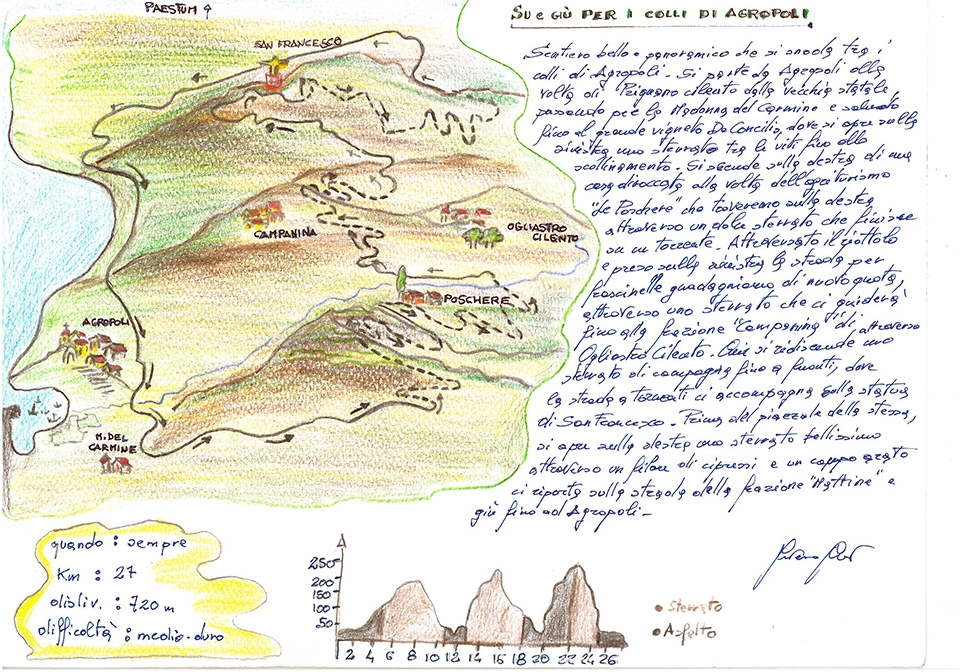 PAESTUM
SU e GIÙ PER I COLLI DI AGROPOLI
SAN FRANCESCO
CAMPANINA
OGLIASTRO
CILENTO
POSCHERE
AGROPOLI
M. DEL
CARMINE
Sentiero bello e panoramico che si snoda tra i
colli di Agropoli. Si parte da Agropoli alla
volta di Prignano Cilento dalla vecchia statale
passando per la Madonna del Carmine e salendo
fino al grande vigneto De Concilis, dove si apre sulla
sinistra uno sterrato tra le viti fino allo
scollinamento. Si scende sulla destra di una
casa diroccata alla volta dell'agriturismo
"Le Poschere" che troveremo sulla destra
attraverso un dolce sterrato che finisce
su un torrente. Attraversato il
e preso sulla sinistra la strada per
guadagniamo di nuovo quota,
attraverso uno sterrato che ci guiderà
fino alla frazione "Campanina" di attraverso
Ogliastro Cilento. Qui si ridiscende uno
sterrato di campagna fino a dove
la strada a tornanti ci accompagna sulla statua
di San Francesco. Prima del piazzale della stessa,
si apre sulla destra uno sterrato bellissimo
attraverso un filare di cipressi e un campo arato
ci riporta sulla strada della frazione "Mattine" e
giù fino ad Agropoli.
quando : sempre
Km : 27
disliv. : 720 m
difficoltà : medio-duro
250
200
150
100
50
2 4 6 8 10 12 14 16 18 20 22 24 26
Sterrato
Asfalto